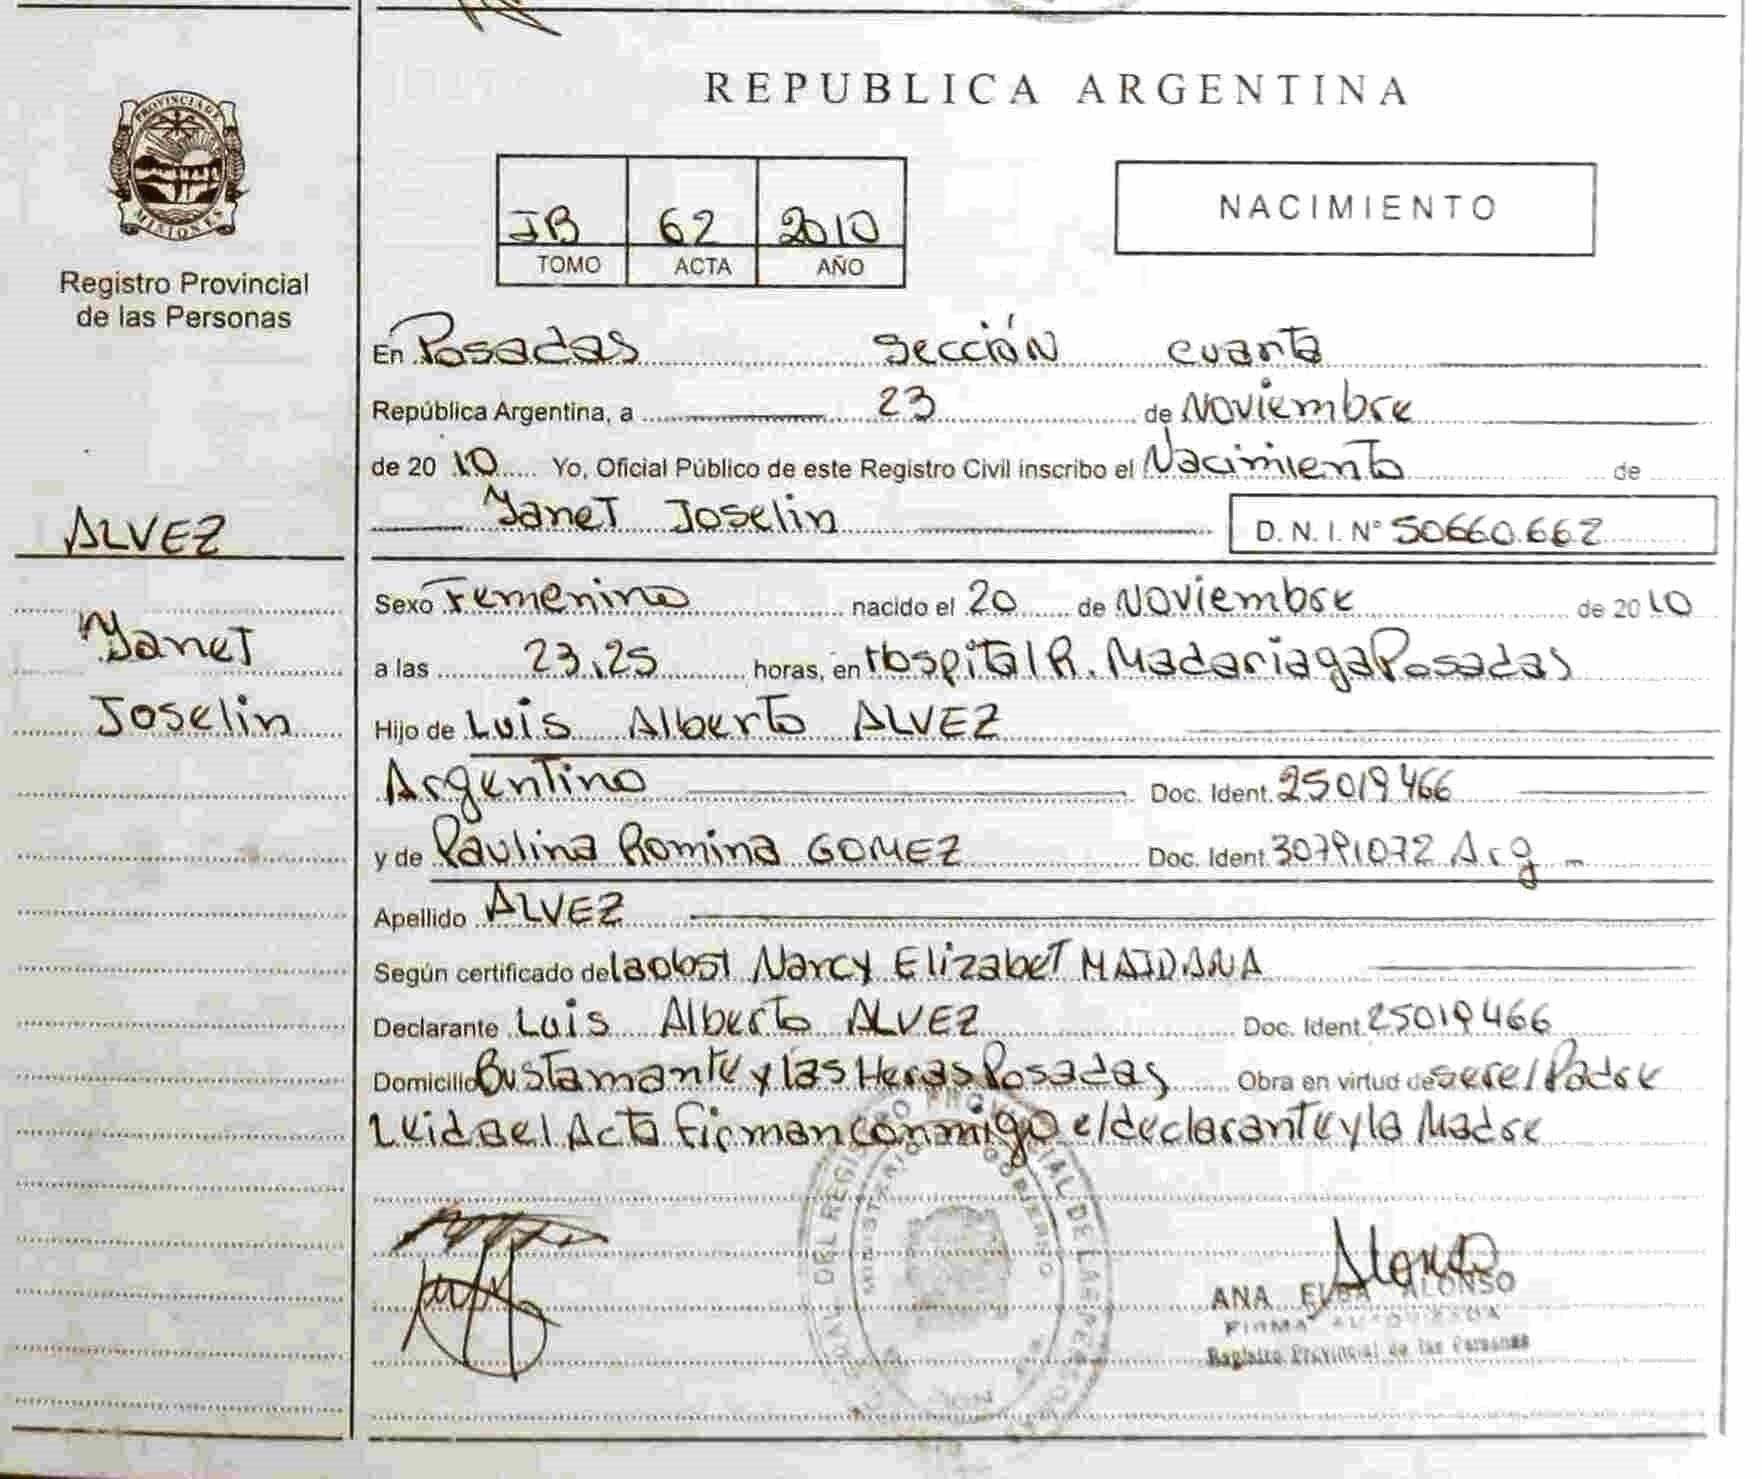 REPUBLICA ARGENTINA
PROVINCIA DE
MISIONES
Registro Provincial
de las Personas
JB 62 2010
TOMO ACTA AÑO
NACIMIENTO
En Posadas Sección cuarta
República Argentina, a 23 de Noviembre
de 2010 Yo, Oficial Público de este Registro Civil inscribo el Nacimiento de
Yanet Joselin D. N. I. N° 50660.662
ALVEZ
Yanet
Joselin
Sexo Femenino nacido el 20 de Noviembre de 2010
a las 23,25 horas, en Hospital R. Madariaga Posadas
Hijo de Luis Alberto ALVEZ
Argentino Doc. Ident. 25019466
y de Paulina Romina GOMEZ Doc. Ident. 30791072 Arg
Apellido ALVEZ
Según certificado de la obst Narcy Elizabet MAIDANA
Declarante Luis Alberto ALVEZ Doc. Ident. 25019466
Domicilio Bustamante y las Heras Posadas Obra en virtud de ser el Padre
Leida el Acta firman conmigo el declarante y la Madre
REGISTRO PROVINCIAL DE LAS PERSONAS
MINISTERIO GOBIERNO
Alonso
ANA ELBA ALONSO
FIRMA AUTORIZADA
Registro Provincial de las Personas